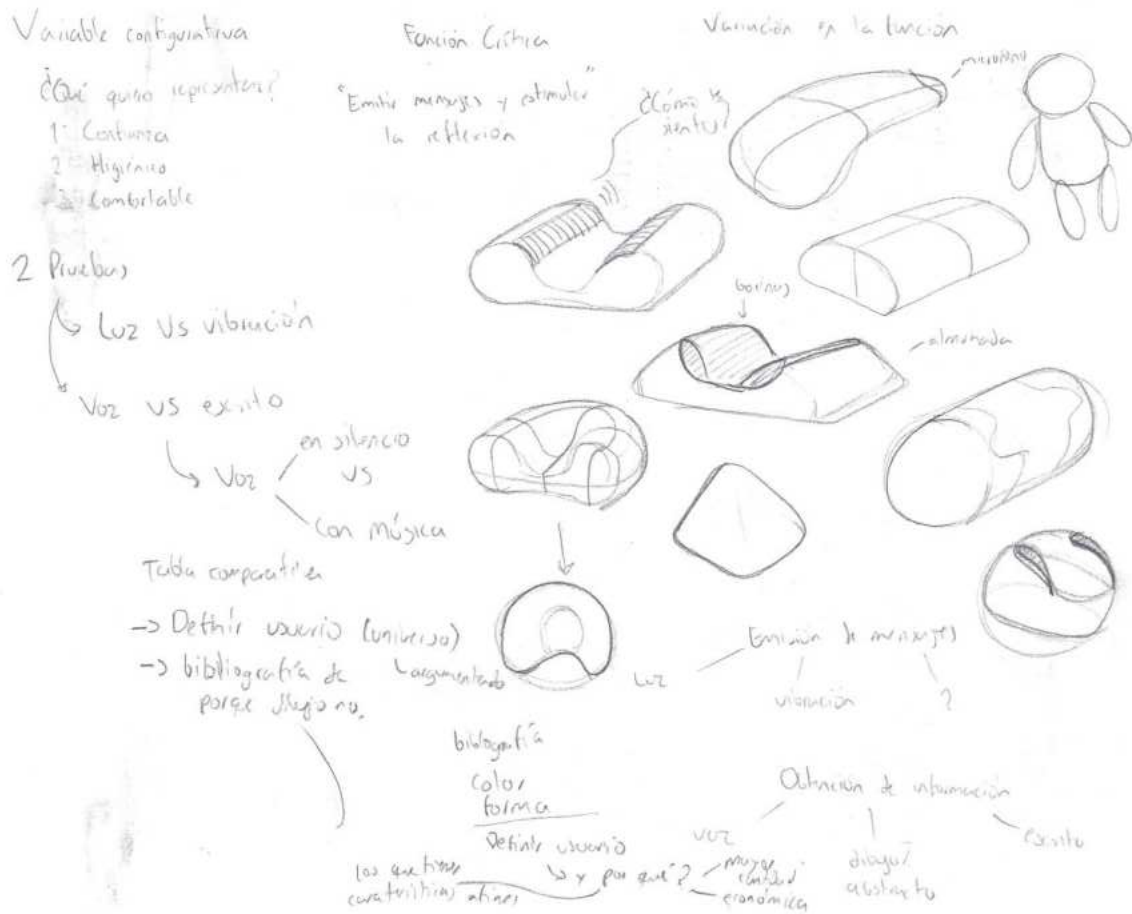 Variable configurativa
¿Qué quiero representar?
1 Confianza
2 Higiénico
3 Confortable
2 Pruebas
Luz VS vibración
Voz VS escrito
Voz
en silencio
VS
Con Música
Tabla comparativa
-> Definir usuario (universo)
-> bibliografía de
porque dibujo no.
Función Crítica
"Emitir mensajes y estimular"
la reflexión
¿Cómo te
sientes?
Variación en la función
micrófono
bocinas
almohada
argumentado
Emisión de mensajes
Luz
vibración
?
bibliografía
color
forma
Definir usuario
y por qué?
mayor
cantidad
económica
los que tienen
características afines
Obtención de información
voz
dibujo/
abstracto
escrito